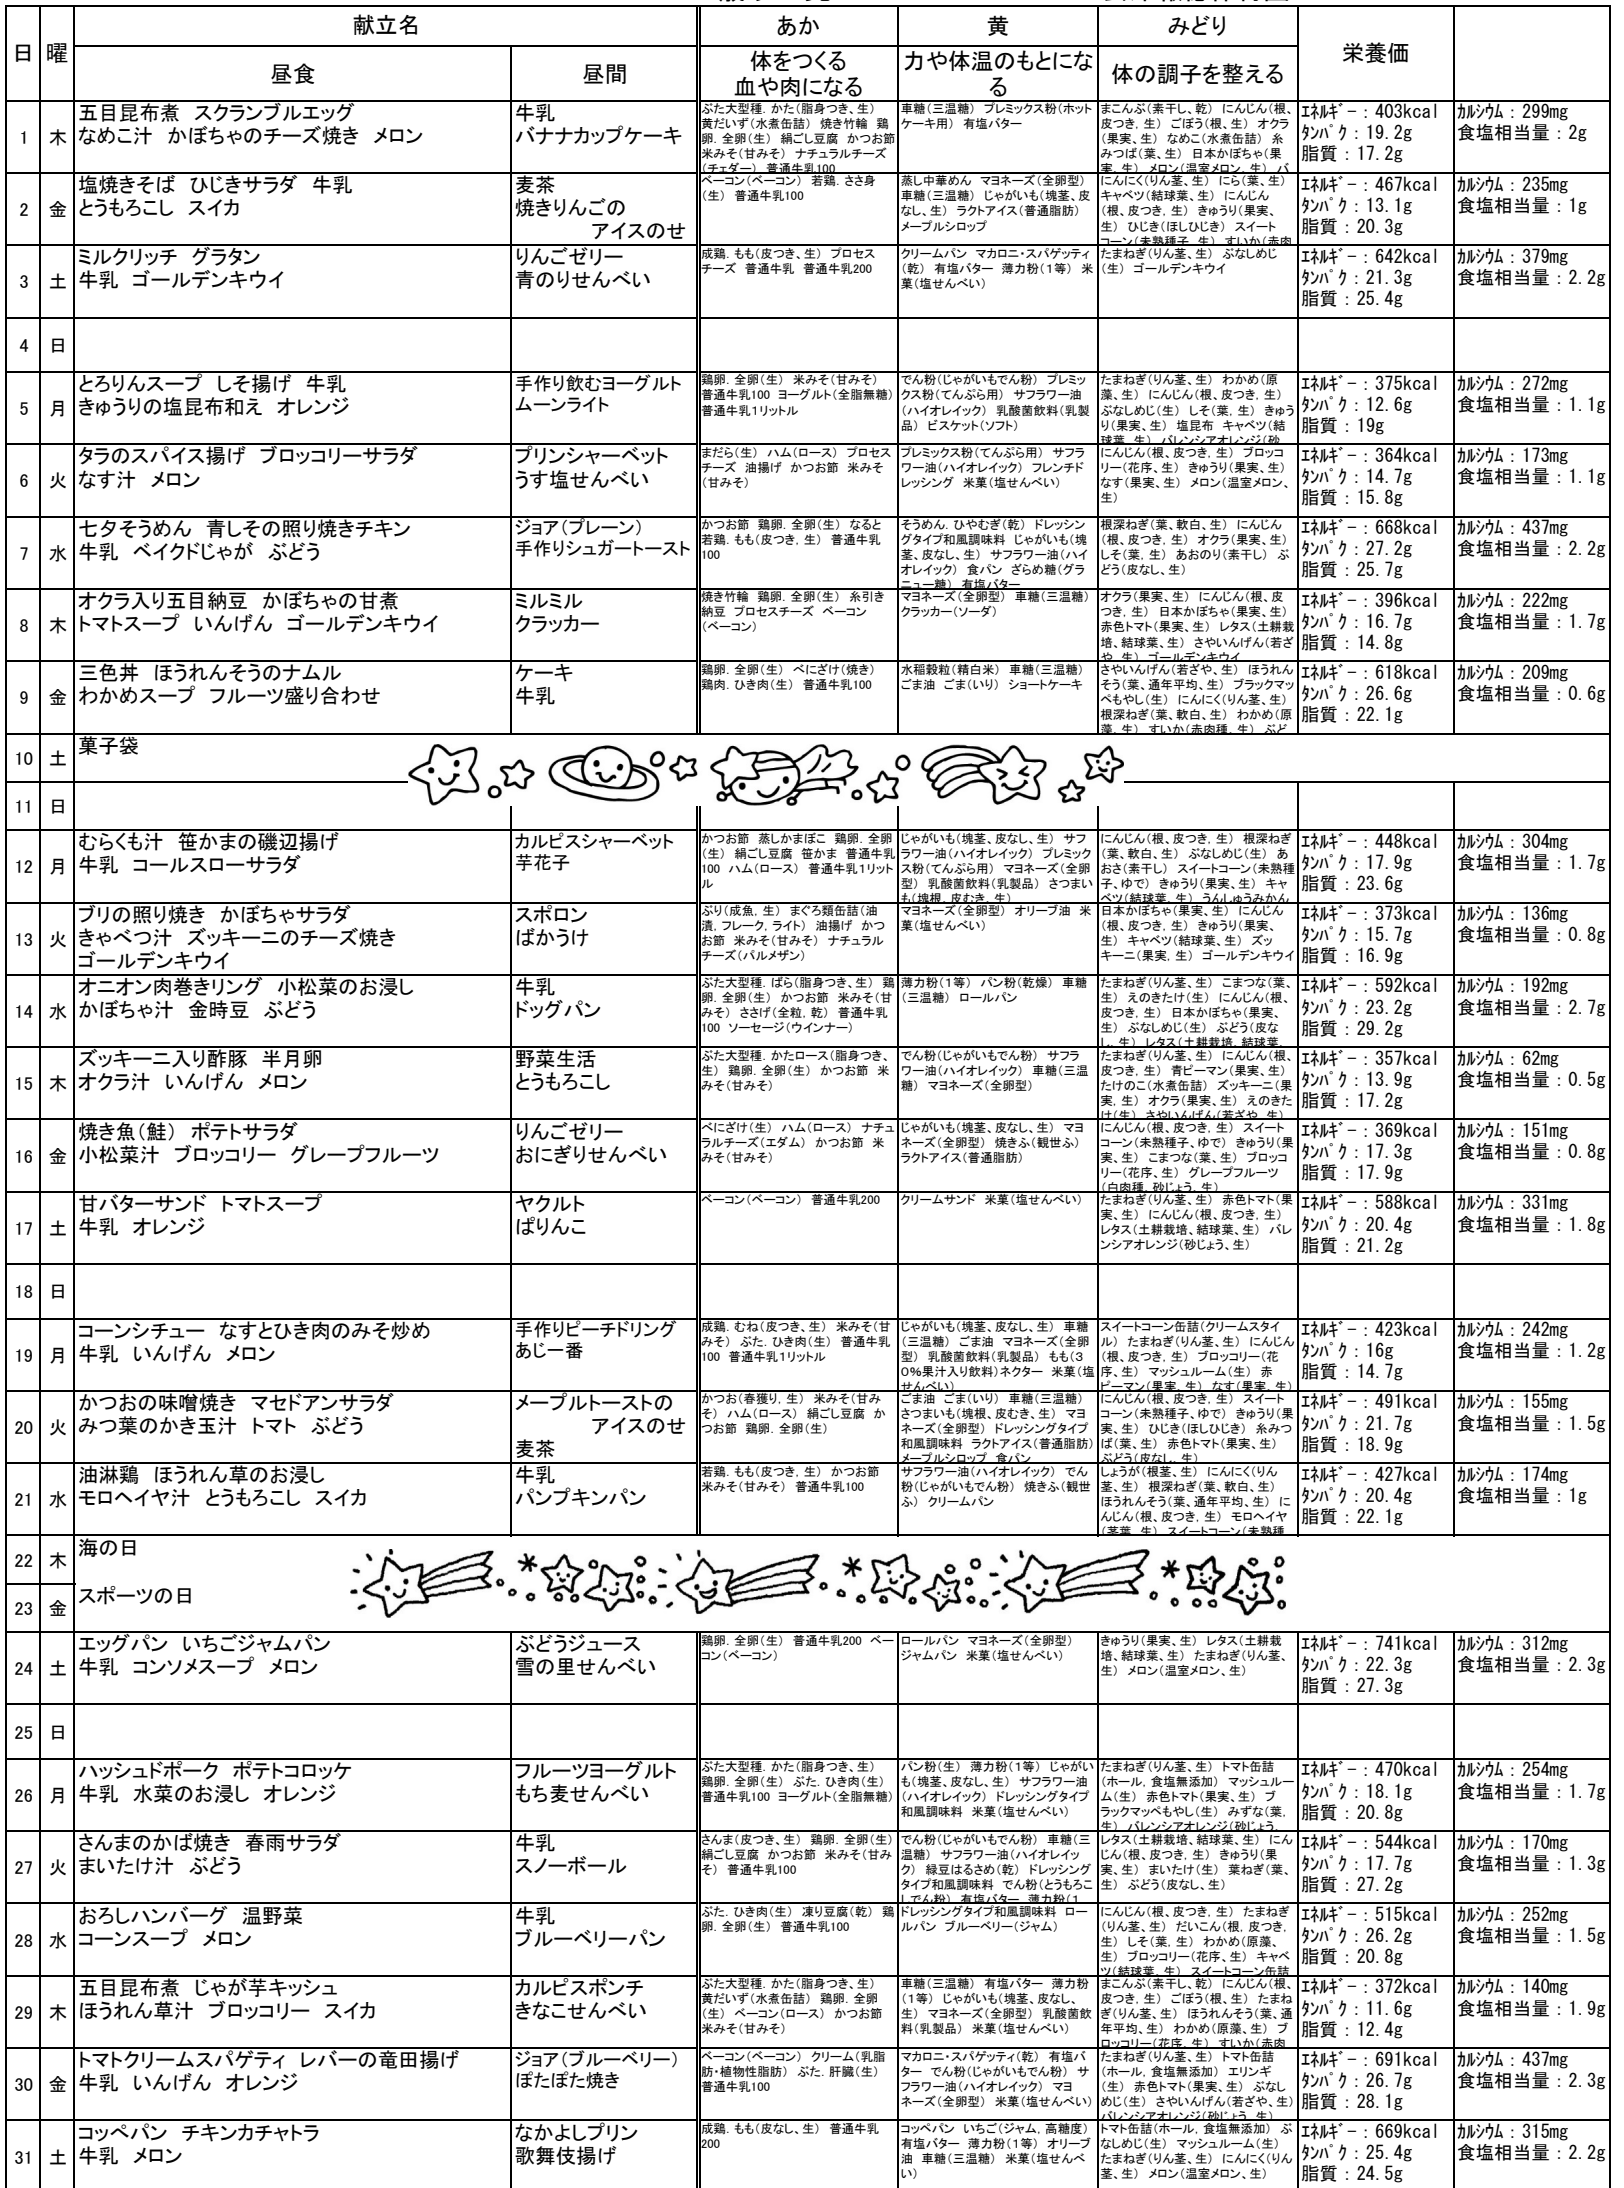 献立名 あか 黄 みどり
日 曜 栄養価
昼食 昼間 体をつくる 力や体温のもとにな 体の調子を整える
血や肉になる る
1 木
五目昆布煮 スクランブルエッグ
なめこ汁 かぼちゃのチーズ焼き メロン
牛乳
バナナカップケーキ
ぶた大型種. かた(脂身つき、生)
黄だいず(水煮缶詰) 焼き竹輪 鶏
卵. 全卵(生) 絹ごし豆腐 かつお節
米みそ(甘みそ) ナチュラルチーズ
(チェダー) 普通牛乳100
車糖(三温糖) プレミックス粉(ホット
ケーキ用) 有塩バター
まこんぶ(素干し、乾) にんじん(根、
皮つき, 生) ごぼう(根、生) オクラ
(果実、生) なめこ(水煮缶詰) 糸
みつば(葉、生) 日本かぼちゃ(果
実、生) メロン(温室メロン、生) バ
エネルギー : 403kcal
タンパク : 19.2g
脂質 : 17.2g
カルシウム : 299mg
食塩相当量 : 2g
2 金
塩焼きそば ひじきサラダ 牛乳
とうもろこし スイカ
麦茶
焼きりんごの
アイスのせ
ベーコン(ベーコン) 若鶏. ささ身
(生) 普通牛乳100
蒸し中華めん マヨネーズ(全卵型)
車糖(三温糖) じゃがいも(塊茎、皮
なし、生) ラクトアイス(普通脂肪)
メープルシロップ
にんにく(りん茎、生) にら(葉、生)
キャベツ(結球葉、生) にんじん
(根、皮つき, 生) きゅうり(果実、
生) ひじき(ほしひじき) スイート
コーン(未熟種子、生) すいか(赤肉
エネルギー : 467kcal
タンパク : 13.1g
脂質 : 20.3g
カルシウム : 235mg
食塩相当量 : 1g
3 土
ミルクリッチ グラタン
牛乳 ゴールデンキウイ
りんごゼリー
青のりせんべい
成鶏. もも(皮つき、生) プロセス
チーズ 普通牛乳 普通牛乳200
クリームパン マカロニ・スパゲッティ
(乾) 有塩バター 薄力粉(1等) 米
菓(塩せんべい)
たまねぎ(りん茎、生) ぶなしめじ
(生) ゴールデンキウイ
エネルギー : 642kcal
タンパク : 21.3g
脂質 : 25.4g
カルシウム : 379mg
食塩相当量 : 2.2g
4 日
5 月
とろりんスープ しそ揚げ 牛乳
きゅうりの塩昆布和え オレンジ
手作り飲むヨーグルト
ムーンライト
鶏卵. 全卵(生) 米みそ(甘みそ)
普通牛乳100 ヨーグルト(全脂無糖)
普通牛乳1リットル
でん粉(じゃがいもでん粉) プレミッ
クス粉(てんぷら用) サフラワー油
(ハイオレイック) 乳酸菌飲料(乳製
品) ビスケット(ソフト)
たまねぎ(りん茎、生) わかめ(原
藻、生) にんじん(根、皮つき, 生)
ぶなしめじ(生) しそ(葉, 生) きゅう
り(果実、生) 塩昆布 キャベツ(結
球葉、生) バレンシアオレンジ(砂
エネルギー : 375kcal
タンパク : 12.6g
脂質 : 19g
カルシウム : 272mg
食塩相当量 : 1.1g
6 火
タラのスパイス揚げ ブロッコリーサラダ
なす汁 メロン
プリンシャーベット
うす塩せんべい
まだら(生) ハム(ロース) プロセス
チーズ 油揚げ かつお節 米みそ
(甘みそ)
プレミックス粉(てんぷら用) サフラ
ワー油(ハイオレイック) フレンチド
レッシング 米菓(塩せんべい)
にんじん(根、皮つき, 生) ブロッコ
リー(花序、生) きゅうり(果実、生)
なす(果実、生) メロン(温室メロン、
生)
エネルギー : 364kcal
タンパク : 14.7g
脂質 : 15.8g
カルシウム : 173mg
食塩相当量 : 1.1g
7 水
七夕そうめん 青しその照り焼きチキン
牛乳 ベイクドじゃが ぶどう
ジョア(プレーン)
手作りシュガートースト
かつお節 鶏卵. 全卵(生) なると
若鶏. もも(皮つき, 生) 普通牛乳
100
そうめん. ひやむぎ(乾) ドレッシン
グタイプ和風調味料 じゃがいも(塊
茎、皮なし、生) サフラワー油(ハイ
オレイック) 食パン ざらめ糖(グラ
ニュー糖) 有塩バター
根深ねぎ(葉、軟白、生) にんじん
(根、皮つき, 生) オクラ(果実、生)
しそ(葉, 生) あおのり(素干し) ぶ
どう(皮なし、生)
エネルギー : 668kcal
タンパク : 27.2g
脂質 : 25.7g
カルシウム : 437mg
食塩相当量 : 2.2g
8 木
オクラ入り五目納豆 かぼちゃの甘煮
トマトスープ いんげん ゴールデンキウイ
ミルミル
クラッカー
焼き竹輪 鶏卵. 全卵(生) 糸引き
納豆 プロセスチーズ ベーコン
(ベーコン)
マヨネーズ(全卵型) 車糖(三温糖)
クラッカー(ソーダ)
オクラ(果実、生) にんじん(根、皮
つき, 生) 日本かぼちゃ(果実、生)
赤色トマト(果実、生) レタス(土耕栽
培、結球葉、生) さやいんげん(若ざ
や、生) ゴールデンキウイ
エネルギー : 396kcal
タンパク : 16.7g
脂質 : 14.8g
カルシウム : 222mg
食塩相当量 : 1.7g
9 金
三色丼 ほうれんそうのナムル
わかめスープ フルーツ盛り合わせ
ケーキ
牛乳
鶏卵. 全卵(生) べにざけ(焼き)
鶏肉. ひき肉(生) 普通牛乳100
水稲穀粒(精白米) 車糖(三温糖)
ごま油 ごま(いり) ショートケーキ
さやいんげん(若ざや、生) ほうれん
そう(葉、通年平均、生) ブラックマッ
ペもやし(生) にんにく(りん茎、生)
根深ねぎ(葉、軟白、生) わかめ(原
藻、生) すいか(赤肉種、生) ぶど
エネルギー : 618kcal
タンパク : 26.6g
脂質 : 22.1g
カルシウム : 209mg
食塩相当量 : 0.6g
10 土 菓子袋
11 日
12 月
むらくも汁 笹かまの磯辺揚げ
牛乳 コールスローサラダ
カルピスシャーベット
芋花子
かつお節 蒸しかまぼこ 鶏卵. 全卵
(生) 絹ごし豆腐 笹かま 普通牛乳
100 ハム(ロース) 普通牛乳1リット
ル
じゃがいも(塊茎、皮なし、生) サフ
ラワー油(ハイオレイック) プレミック
ス粉(てんぷら用) マヨネーズ(全卵
型) 乳酸菌飲料(乳製品) さつまい
も(塊根、皮むき、生)
にんじん(根、皮つき, 生) 根深ねぎ
(葉、軟白、生) ぶなしめじ(生) あ
おさ(素干し) スイートコーン(未熟種
子、ゆで) きゅうり(果実、生) キャ
ベツ(結球葉、生) うんしゅうみかん
エネルギー : 448kcal
タンパク : 17.9g
脂質 : 23.6g
カルシウム : 304mg
食塩相当量 : 1.7g
13 火
ブリの照り焼き かぼちゃサラダ
きゃべつ汁 ズッキーニのチーズ焼き
ゴールデンキウイ
スポロン
ばかうけ
ぶり(成魚, 生) まぐろ類缶詰(油
漬, フレーク, ライト) 油揚げ かつ
お節 米みそ(甘みそ) ナチュラル
チーズ(パルメザン)
マヨネーズ(全卵型) オリーブ油 米
菓(塩せんべい)
日本かぼちゃ(果実、生) にんじん
(根、皮つき, 生) きゅうり(果実、
生) キャベツ(結球葉、生) ズッ
キーニ(果実, 生) ゴールデンキウイ
エネルギー : 373kcal
タンパク : 15.7g
脂質 : 16.9g
カルシウム : 136mg
食塩相当量 : 0.8g
14 水
オニオン肉巻きリング 小松菜のお浸し
かぼちゃ汁 金時豆 ぶどう
牛乳
ドッグパン
ぶた大型種. ばら(脂身つき、生) 鶏
卵. 全卵(生) かつお節 米みそ(甘
みそ) ささげ(全粒, 乾) 普通牛乳
100 ソーセージ(ウインナー)
薄力粉(1等) パン粉(乾燥) 車糖
(三温糖) ロールパン
たまねぎ(りん茎、生) こまつな(葉、
生) えのきたけ(生) にんじん(根、
皮つき, 生) 日本かぼちゃ(果実、
生) ぶなしめじ(生) ぶどう(皮な
し、生) レタス(土耕栽培、結球葉、
エネルギー : 592kcal
タンパク : 23.2g
脂質 : 29.2g
カルシウム : 192mg
食塩相当量 : 2.7g
15 木
ズッキーニ入り酢豚 半月卵
オクラ汁 いんげん メロン
野菜生活
とうもろこし
ぶた大型種. かたロース(脂身つき、
生) 鶏卵. 全卵(生) かつお節 米
みそ(甘みそ)
でん粉(じゃがいもでん粉) サフラ
ワー油(ハイオレイック) 車糖(三温
糖) マヨネーズ(全卵型)
たまねぎ(りん茎、生) にんじん(根、
皮つき, 生) 青ピーマン(果実、生)
たけのこ(水煮缶詰) ズッキーニ(果
実, 生) オクラ(果実、生) えのきた
け(生) さやいんげん(若ざや、生)
エネルギー : 357kcal
タンパク : 13.9g
脂質 : 17.2g
カルシウム : 62mg
食塩相当量 : 0.5g
16 金
焼き魚(鮭) ポテトサラダ
小松菜汁 ブロッコリー グレープフルーツ
りんごゼリー
おにぎりせんべい
べにざけ(生) ハム(ロース) ナチュ
ラルチーズ(エダム) かつお節 米
みそ(甘みそ)
じゃがいも(塊茎、皮なし、生) マヨ
ネーズ(全卵型) 焼きふ(観世ふ)
ラクトアイス(普通脂肪)
にんじん(根、皮つき, 生) スイート
コーン(未熟種子、ゆで) きゅうり(果
実、生) こまつな(葉、生) ブロッコ
リー(花序、生) グレープフルーツ
(白肉種, 砂じょう, 生)
エネルギー : 369kcal
タンパク : 17.3g
脂質 : 17.9g
カルシウム : 151mg
食塩相当量 : 0.8g
17 土
甘バターサンド トマトスープ
牛乳 オレンジ
ヤクルト
ぱりんこ
ベーコン(ベーコン) 普通牛乳200
クリームサンド 米菓(塩せんべい)
たまねぎ(りん茎、生) 赤色トマト(果
実、生) にんじん(根、皮つき, 生)
レタス(土耕栽培、結球葉、生) バレ
ンシアオレンジ(砂じょう、生)
エネルギー : 588kcal
タンパク : 20.4g
脂質 : 21.2g
カルシウム : 331mg
食塩相当量 : 1.8g
18 日
19 月
コーンシチュー なすとひき肉のみそ炒め
牛乳 いんげん メロン
手作りピーチドリンク
あじ一番
成鶏. むね(皮つき、生) 米みそ(甘
みそ) ぶた. ひき肉(生) 普通牛乳
100 普通牛乳1リットル
じゃがいも(塊茎、皮なし、生) 車糖
(三温糖) ごま油 マヨネーズ(全卵
型) 乳酸菌飲料(乳製品) もも(3
0%果汁入り飲料)ネクター 米菓(塩
せんべい)
スイートコーン缶詰(クリームスタイ
ル) たまねぎ(りん茎、生) にんじん
(根、皮つき, 生) ブロッコリー(花
序、生) マッシュルーム(生) 赤
ピーマン(果実、生) なす(果実、生)
エネルギー : 423kcal
タンパク : 16g
脂質 : 14.7g
カルシウム : 242mg
食塩相当量 : 1.2g
20 火
かつおの味噌焼き マセドアンサラダ
みつ葉のかき玉汁 トマト ぶどう
メープルトーストの
アイスのせ
麦茶
かつお(春獲り, 生) 米みそ(甘み
そ) ハム(ロース) 絹ごし豆腐 か
つお節 鶏卵. 全卵(生)
ごま油 ごま(いり) 車糖(三温糖)
さつまいも(塊根、皮むき、生) マヨ
ネーズ(全卵型) ドレッシングタイプ
和風調味料 ラクトアイス(普通脂肪)
メープルシロップ 食パン
にんじん(根、皮つき, 生) スイート
コーン(未熟種子、ゆで) きゅうり(果
実、生) ひじき(ほしひじき) 糸みつ
ば(葉、生) 赤色トマト(果実、生)
ぶどう(皮なし、生)
エネルギー : 491kcal
タンパク : 21.7g
脂質 : 18.9g
カルシウム : 155mg
食塩相当量 : 1.5g
21 水
油淋鶏 ほうれん草のお浸し
モロヘイヤ汁 とうもろこし スイカ
牛乳
パンプキンパン
若鶏. もも(皮つき, 生) かつお節
米みそ(甘みそ) 普通牛乳100
サフラワー油(ハイオレイック) でん
粉(じゃがいもでん粉) 焼きふ(観世
ふ) クリームパン
しょうが(根茎、生) にんにく(りん
茎、生) 根深ねぎ(葉、軟白、生)
ほうれんそう(葉、通年平均、生) に
んじん(根、皮つき, 生) モロヘイヤ
(茎葉、生) スイートコーン(未熟種
エネルギー : 427kcal
タンパク : 20.4g
脂質 : 22.1g
カルシウム : 174mg
食塩相当量 : 1g
22 木 海の日
23 金 スポーツの日
24 土
エッグパン いちごジャムパン
牛乳 コンソメスープ メロン
ぶどうジュース
雪の里せんべい
鶏卵. 全卵(生) 普通牛乳200 ベー
コン(ベーコン)
ロールパン マヨネーズ(全卵型)
ジャムパン 米菓(塩せんべい)
きゅうり(果実、生) レタス(土耕栽
培、結球葉、生) たまねぎ(りん茎、
生) メロン(温室メロン、生)
エネルギー : 741kcal
タンパク : 22.3g
脂質 : 27.3g
カルシウム : 312mg
食塩相当量 : 2.3g
25 日
26 月
ハッシュドポーク ポテトコロッケ
牛乳 水菜のお浸し オレンジ
フルーツヨーグルト
もち麦せんべい
ぶた大型種. かた(脂身つき、生)
鶏卵. 全卵(生) ぶた. ひき肉(生)
普通牛乳100 ヨーグルト(全脂無糖)
パン粉(生) 薄力粉(1等) じゃがい
も(塊茎、皮なし、生) サフラワー油
(ハイオレイック) ドレッシングタイプ
和風調味料 米菓(塩せんべい)
たまねぎ(りん茎、生) トマト缶詰
(ホール, 食塩無添加) マッシュルー
ム(生) 赤色トマト(果実、生) ブ
ラックマッペもやし(生) みずな(葉,
生) バレンシアオレンジ(砂じょう、
エネルギー : 470kcal
タンパク : 18.1g
脂質 : 20.8g
カルシウム : 254mg
食塩相当量 : 1.7g
27 火
さんまのかば焼き 春雨サラダ
まいたけ汁 ぶどう
牛乳
スノーボール
さんま(皮つき、生) 鶏卵. 全卵(生)
絹ごし豆腐 かつお節 米みそ(甘み
そ) 普通牛乳100
でん粉(じゃがいもでん粉) 車糖(三
温糖) サフラワー油(ハイオレイッ
ク) 緑豆はるさめ(乾) ドレッシング
タイプ和風調味料 でん粉(とうもろこ
しでん粉) 有塩バター 薄力粉(1
レタス(土耕栽培、結球葉、生) にん
じん(根、皮つき, 生) きゅうり(果
実、生) まいたけ(生) 葉ねぎ(葉、
生) ぶどう(皮なし、生)
エネルギー : 544kcal
タンパク : 17.7g
脂質 : 27.2g
カルシウム : 170mg
食塩相当量 : 1.3g
28 水
おろしハンバーグ 温野菜
コーンスープ メロン
牛乳
ブルーベリーパン
ぶた. ひき肉(生) 凍り豆腐(乾) 鶏
卵. 全卵(生) 普通牛乳100
ドレッシングタイプ和風調味料 ロー
ルパン ブルーベリー(ジャム)
にんじん(根、皮つき, 生) たまねぎ
(りん茎、生) だいこん(根, 皮つき,
生) しそ(葉, 生) わかめ(原藻、
生) ブロッコリー(花序、生) キャベ
ツ(結球葉、生) スイートコーン缶詰
エネルギー : 515kcal
タンパク : 26.2g
脂質 : 20.8g
カルシウム : 252mg
食塩相当量 : 1.5g
29 木
五目昆布煮 じゃが芋キッシュ
ほうれん草汁 ブロッコリー スイカ
カルピスポンチ
きなこせんべい
ぶた大型種. かた(脂身つき、生)
黄だいず(水煮缶詰) 鶏卵. 全卵
(生) ベーコン(ロース) かつお節
米みそ(甘みそ)
車糖(三温糖) 有塩バター 薄力粉
(1等) じゃがいも(塊茎、皮なし、
生) マヨネーズ(全卵型) 乳酸菌飲
料(乳製品) 米菓(塩せんべい)
まこんぶ(素干し、乾) にんじん(根、
皮つき, 生) ごぼう(根、生) たまね
ぎ(りん茎、生) ほうれんそう(葉、通
年平均、生) わかめ(原藻、生) ブ
ロッコリー(花序、生) すいか(赤肉
エネルギー : 372kcal
タンパク : 11.6g
脂質 : 12.4g
カルシウム : 140mg
食塩相当量 : 1.9g
30 金
トマトクリームスパゲティ レバーの竜田揚げ
牛乳 いんげん オレンジ
ジョア(ブルーベリー)
ぽたぽた焼き
ベーコン(ベーコン) クリーム(乳脂
肪・植物性脂肪) ぶた. 肝臓(生)
普通牛乳100
マカロニ・スパゲッティ(乾) 有塩バ
ター でん粉(じゃがいもでん粉) サ
フラワー油(ハイオレイック) マヨ
ネーズ(全卵型) 米菓(塩せんべい)
たまねぎ(りん茎、生) トマト缶詰
(ホール, 食塩無添加) エリンギ
(生) 赤色トマト(果実、生) ぶなし
めじ(生) さやいんげん(若ざや、生)
バレンシアオレンジ(砂じょう、生)
エネルギー : 691kcal
タンパク : 26.7g
脂質 : 28.1g
カルシウム : 437mg
食塩相当量 : 2.3g
31 土
コッペパン チキンカチャトラ
牛乳 メロン
なかよしプリン
歌舞伎揚げ
成鶏. もも(皮なし、生) 普通牛乳
200
コッペパン いちご(ジャム, 高糖度)
有塩バター 薄力粉(1等) オリーブ
油 車糖(三温糖) 米菓(塩せんべ
い)
トマト缶詰(ホール, 食塩無添加) ぶ
なしめじ(生) マッシュルーム(生)
たまねぎ(りん茎、生) にんにく(りん
茎、生) メロン(温室メロン、生)
エネルギー : 669kcal
タンパク : 25.4g
脂質 : 24.5g
カルシウム : 315mg
食塩相当量 : 2.2g